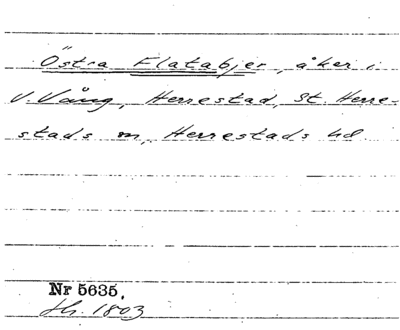 Östra Flatabjer, åker i
V. Vång, Herrestad, St. Herre-
stads sn, Herrestads hd.
Nr 5635,
1803